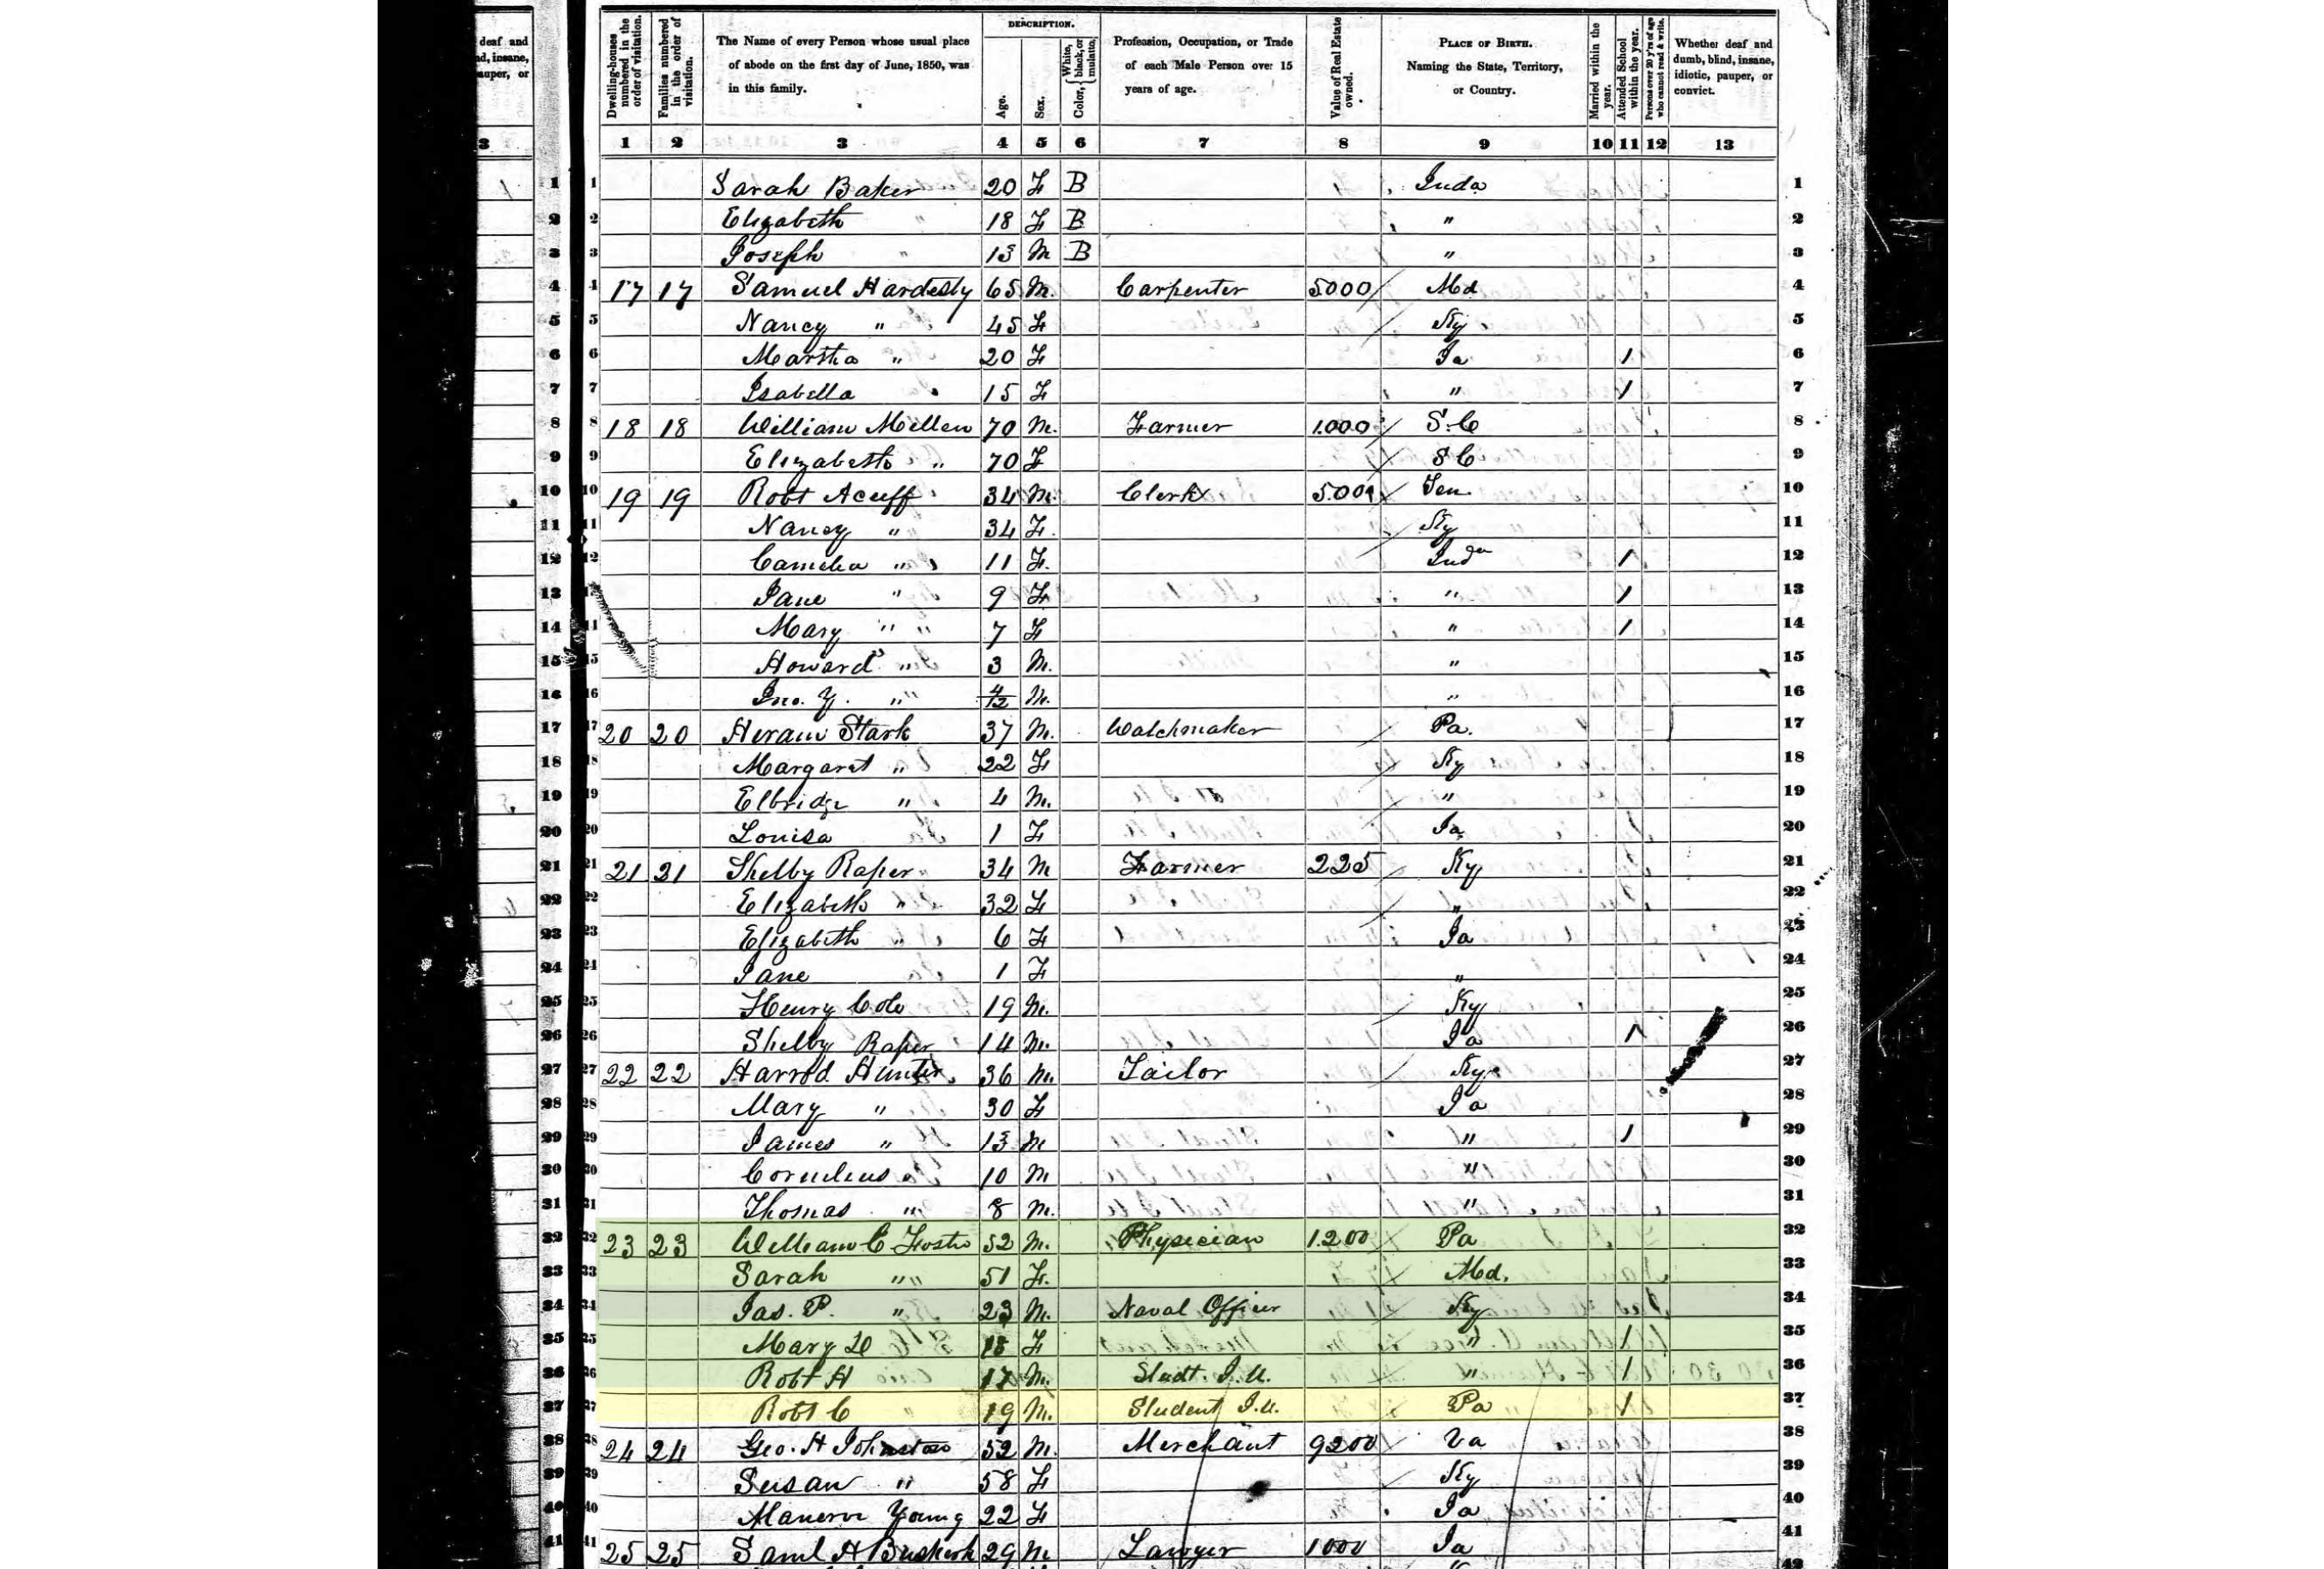 deaf and
nd, insane,
auper, or
3
Dwelling-houses numbered in the order of visitation.
Families numbered in the order of visitation.
The Name of every Person whose usual place of abode on the first day of June, 1850, was in this family.
DESCRIPTION.
Age.
Sex.
Color, { White, black, or mulatto.
Profession, Occupation, or Trade of each Male Person over 15 years of age.
Value of Real Estate owned.
PLACE OF BIRTH.
Naming the State, Territory, or Country.
Married within the year.
Attended School within the year.
Persons over 20 y'rs of age who cannot read & write.
Whether deaf and dumb, blind, insane, idiotic, pauper, or convict.
1 2 3 4 5 6 7 8 9 10 11 12 13
1 1 Sarah Baker 20 F B Inda 1
2 2 Elizabeth " 18 F B " 2
3 3 Joseph " 13 M B " 3
4 4 17 17 Samuel Hardesty 65 M. Carpenter 5000 Md 4
5 5 Nancy " 45 F Ky 5
6 6 Martha " 20 F Ia 1 6
7 7 Isabella 15 F " 1 7
8 8 18 18 William Millen 70 M. Farmer 1000 S.C 8
9 9 Elizabeth " 70 F S C 9
10 10 19 19 Robt Acuff 34 M. Clerk Ten. 10
11 11 Nancy " 34 F. Ky 11
12 12 " 11 F. Inda 1 12
13 Jane " 9 F. " 1 13
14 Mary " " 7 F " 1 14
15 15 Howard " 3 M. " 15
16 16 Jno. Y. " 4/12 M. " 16
17 17 20 20 Hiram Stark 37 M. Watchmaker Pa. 17
18 18 Margaret " 22 F Ky 18
19 19 Elbridge " 4 M. " 19
20 20 Louisa 1 F Ia 20
21 21 21 21 Shelby Raper 34 M Farmer 225 Ky 21
22 22 Elizabeth " 32 F " 22
23 23 Elizabeth " 6 F Ia 23
24 24 Jane 1 F " 24
25 25 Henry Cole 19 M. Ky 25
26 26 Shelby Raper 14 M. Ia 1 26
27 27 22 22 Harrod Hunter 36 M. Tailor Ky 27
28 28 Mary " 30 F Ia 28
29 29 James " 13 M " 1 29
30 30 Cornelius 10 M " 30
31 31 Thomas " 8 M. " 31
32 32 23 23 William C Foster 52 M. Physician 1200 Pa 32
33 33 Sarah " " 51 F. Md. 33
34 34 Jas. P. " 23 M. Naval Officer Ky 34
35 35 Mary 18 F " 1 35
36 36 Robt H 17 M. Studt. I.U. " 1 36
37 37 Robt C " 19 M. Student I.U. Pa 1 37
38 38 24 24 Geo. H Johnston 52 M. Merchant 9200 Va 38
39 39 Susan " 58 F Ky 39
40 40 Young 22 F Ia 40
41 41 25 25 Saml H Buskirk 29 M Lawyer 1000 Ia 41
42